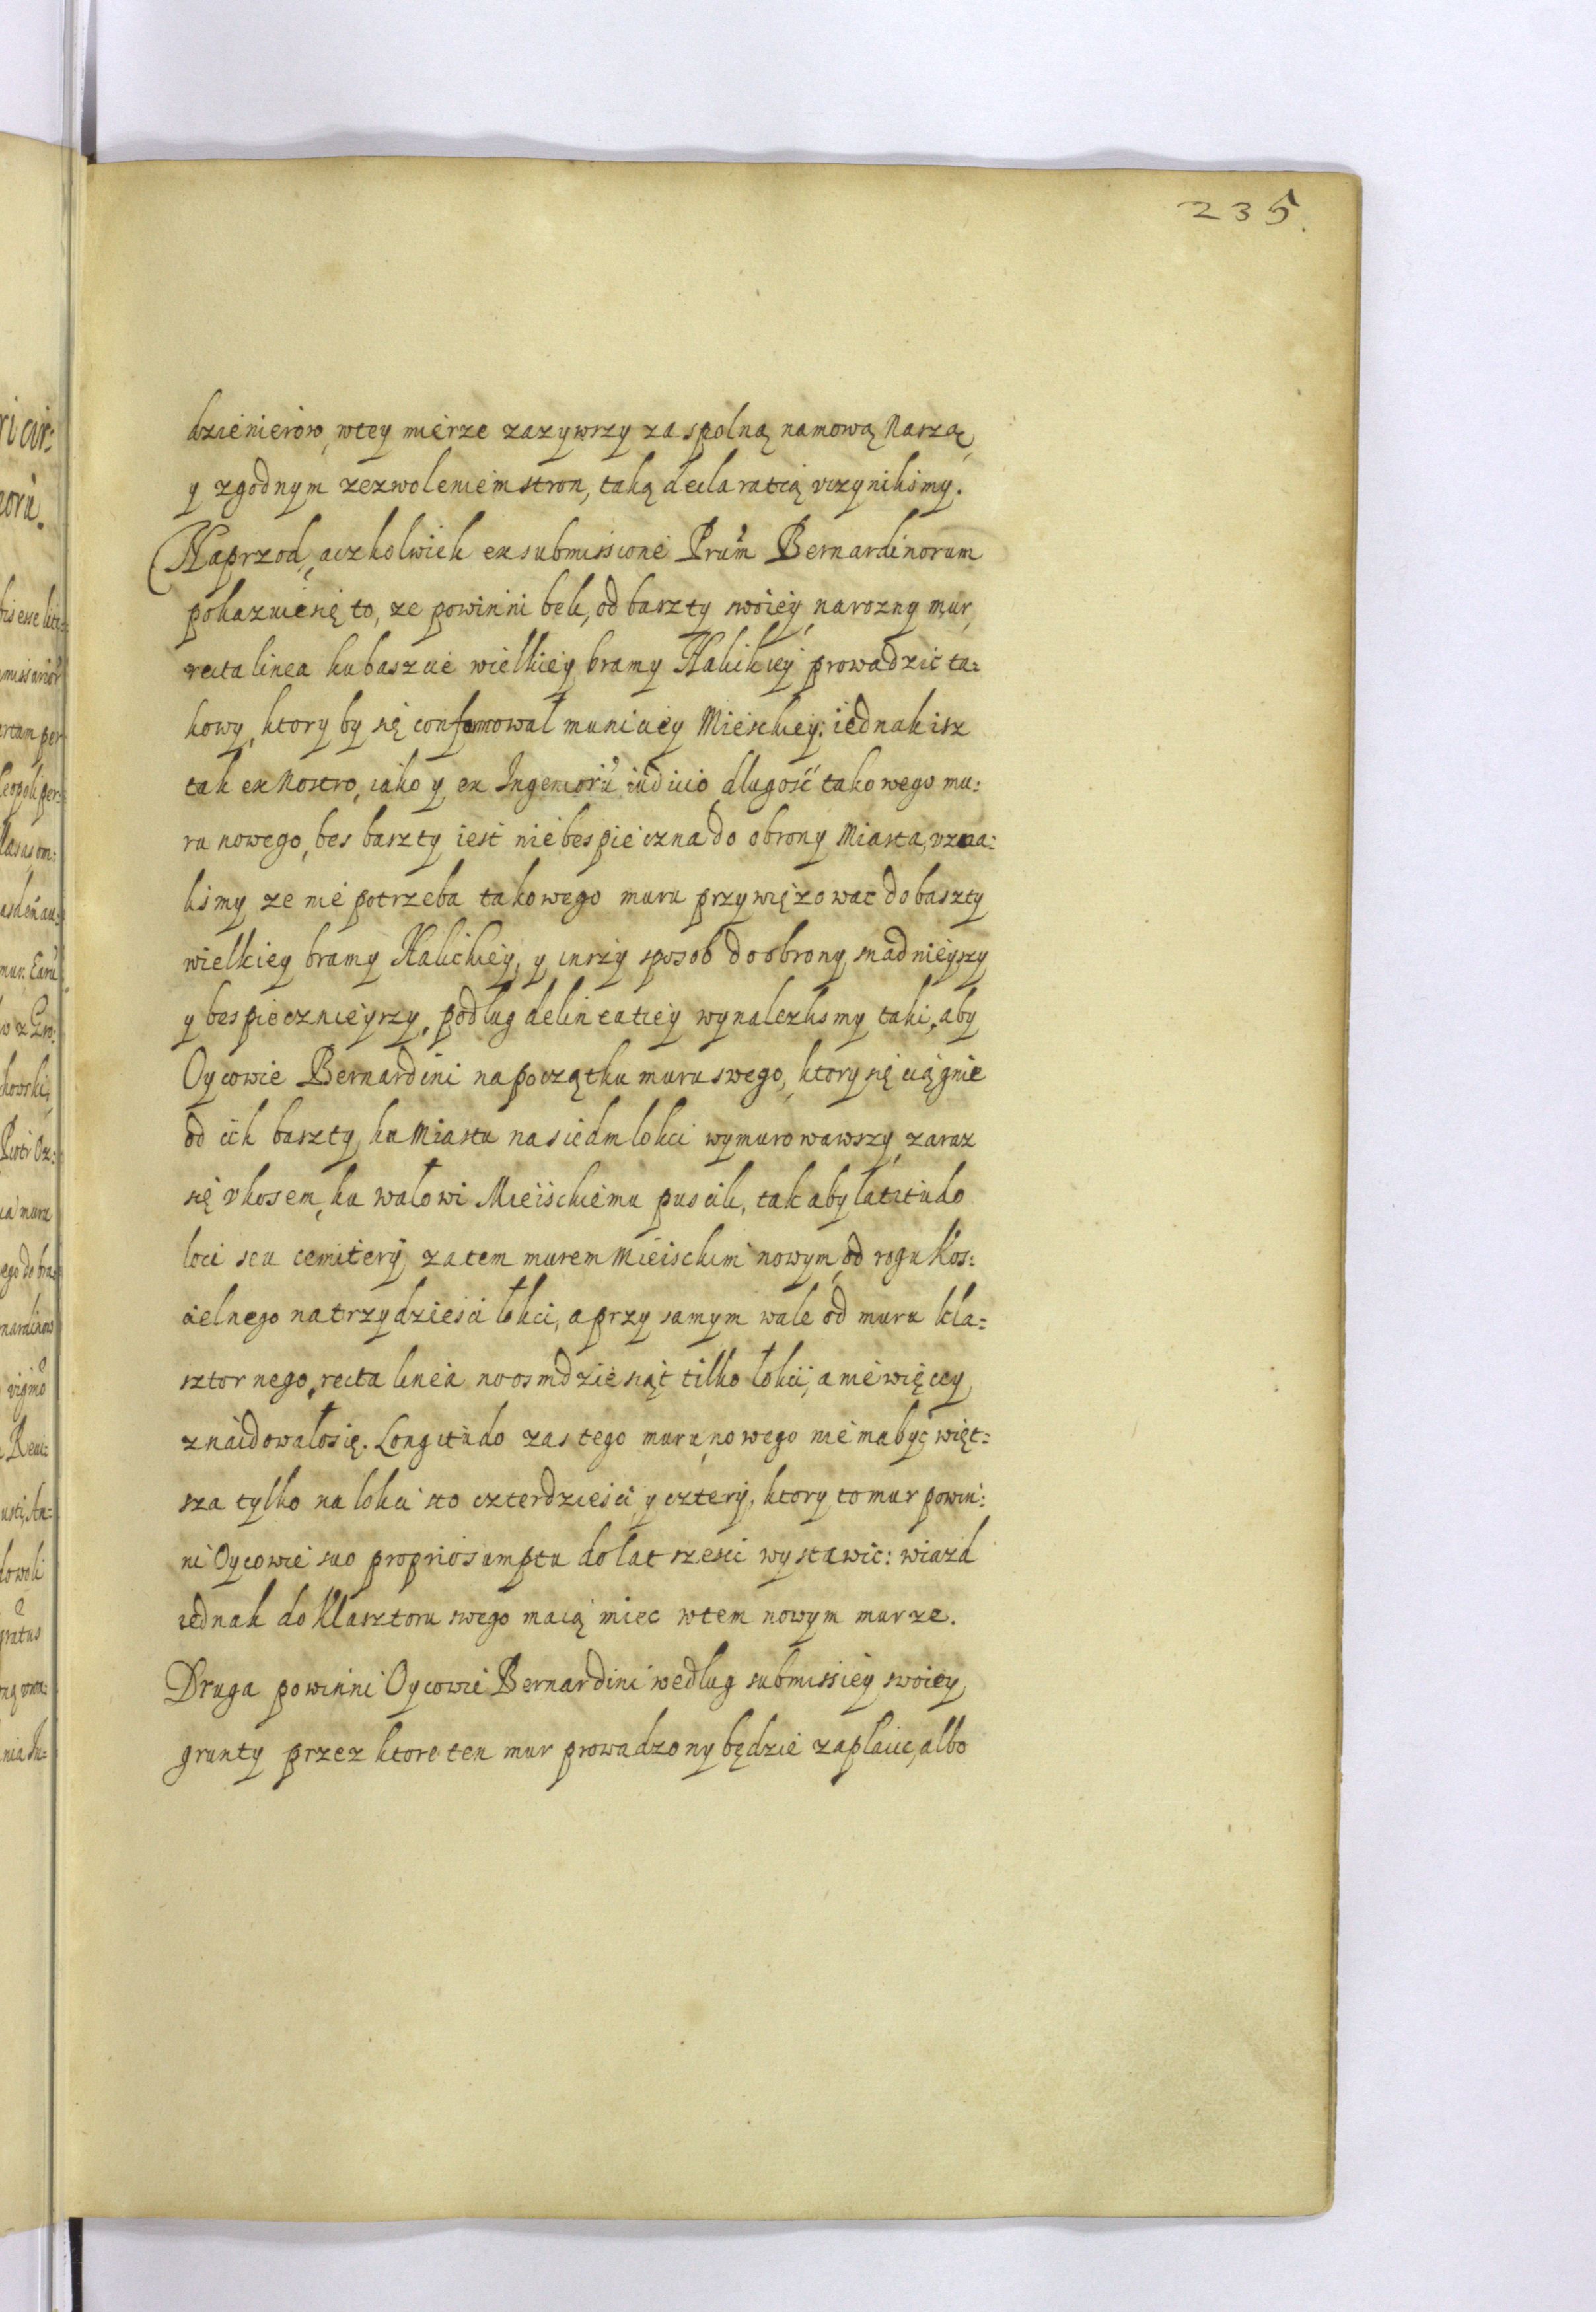 235.
dzienierow, wtey mierze zazywrzy za spolną namową Naszą,
y zgodnym zezwoleniem stron, taką declaratią uczynilismy.
Naprzod, aczkolwiek ex submissione Prum Bernardinorum
pokazuie się to, ze powinni beli, od baszty swoiey narozny mur,
recta linea ku baszcie wielkiey bramy Halickiey prowadzić ta:
kowy, ktory by się conformował municiey Mieskiey: iednak isz
tak ex Nostro, iako y ex Ingenioru iudicio długość takowego mu:
ru nowego, bes baszty iest niebespieczna do obrony Miasta, uzna:
lismy ze nie potrzeba takowego muru przywięzowac do baszty
wielkiey bramy Halickiey, y inszy sposob do obrony snadnieyszy
y bespiecznieyszy, podług delineatiey wynalezlismy taki, aby
Oycowie Bernardini na początku muru swego, ktory się ciągnie
od ich baszty ku Miastu na siedm lokci wymurowawszy, zaraz
się ukosem, ku wałowi Mieiskiemu puscili, tak aby latitudo
loci seu cemiterij za tem murem Mieiskim nowym, od rogu Kos:
cielnego na trzydziesci łokci, a przy samym wale od muru kla=
sztornego, recta linea no osmdziesiąt tilko łokci, a nie więcey
znaidowało się. Longitudo zas tego muru nowego nie ma być więt=
sza tylko na lokci sto czterdziesci y cztery, ktory to mur powin:
ni Oycowie suo proprio sumptu do lat szesci wystawic: wiazd
iednak do Klasztoru swego maią miec w tem nowym murze.
Druga powinni Oycowie Bernardini według submissiey swoiey
grunty przez ktore ten mur prowadzony będzie zapłacic, albo